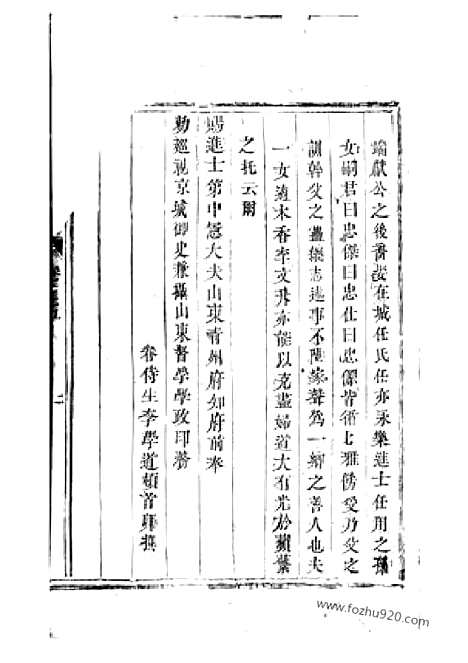 獻公之後實娶在城任氏任亦永樂進士任用之孫
女嗣君曰忠傑曰忠仕曰忠傑皆循七雅傍受乃父之
訓幹父之蠱樂志述事不隕家聲爲一鄉之善人也夫
一女適木香李文升亦能以克盡婦道大有光於蘋蘩
之托云爾
賜進士第中憲大夫山東青州府知府前奉
勅巡視京城御史兼攝山東督學學政印務
眷侍生李學道頓首拜撰
二
www.fozhu920.com